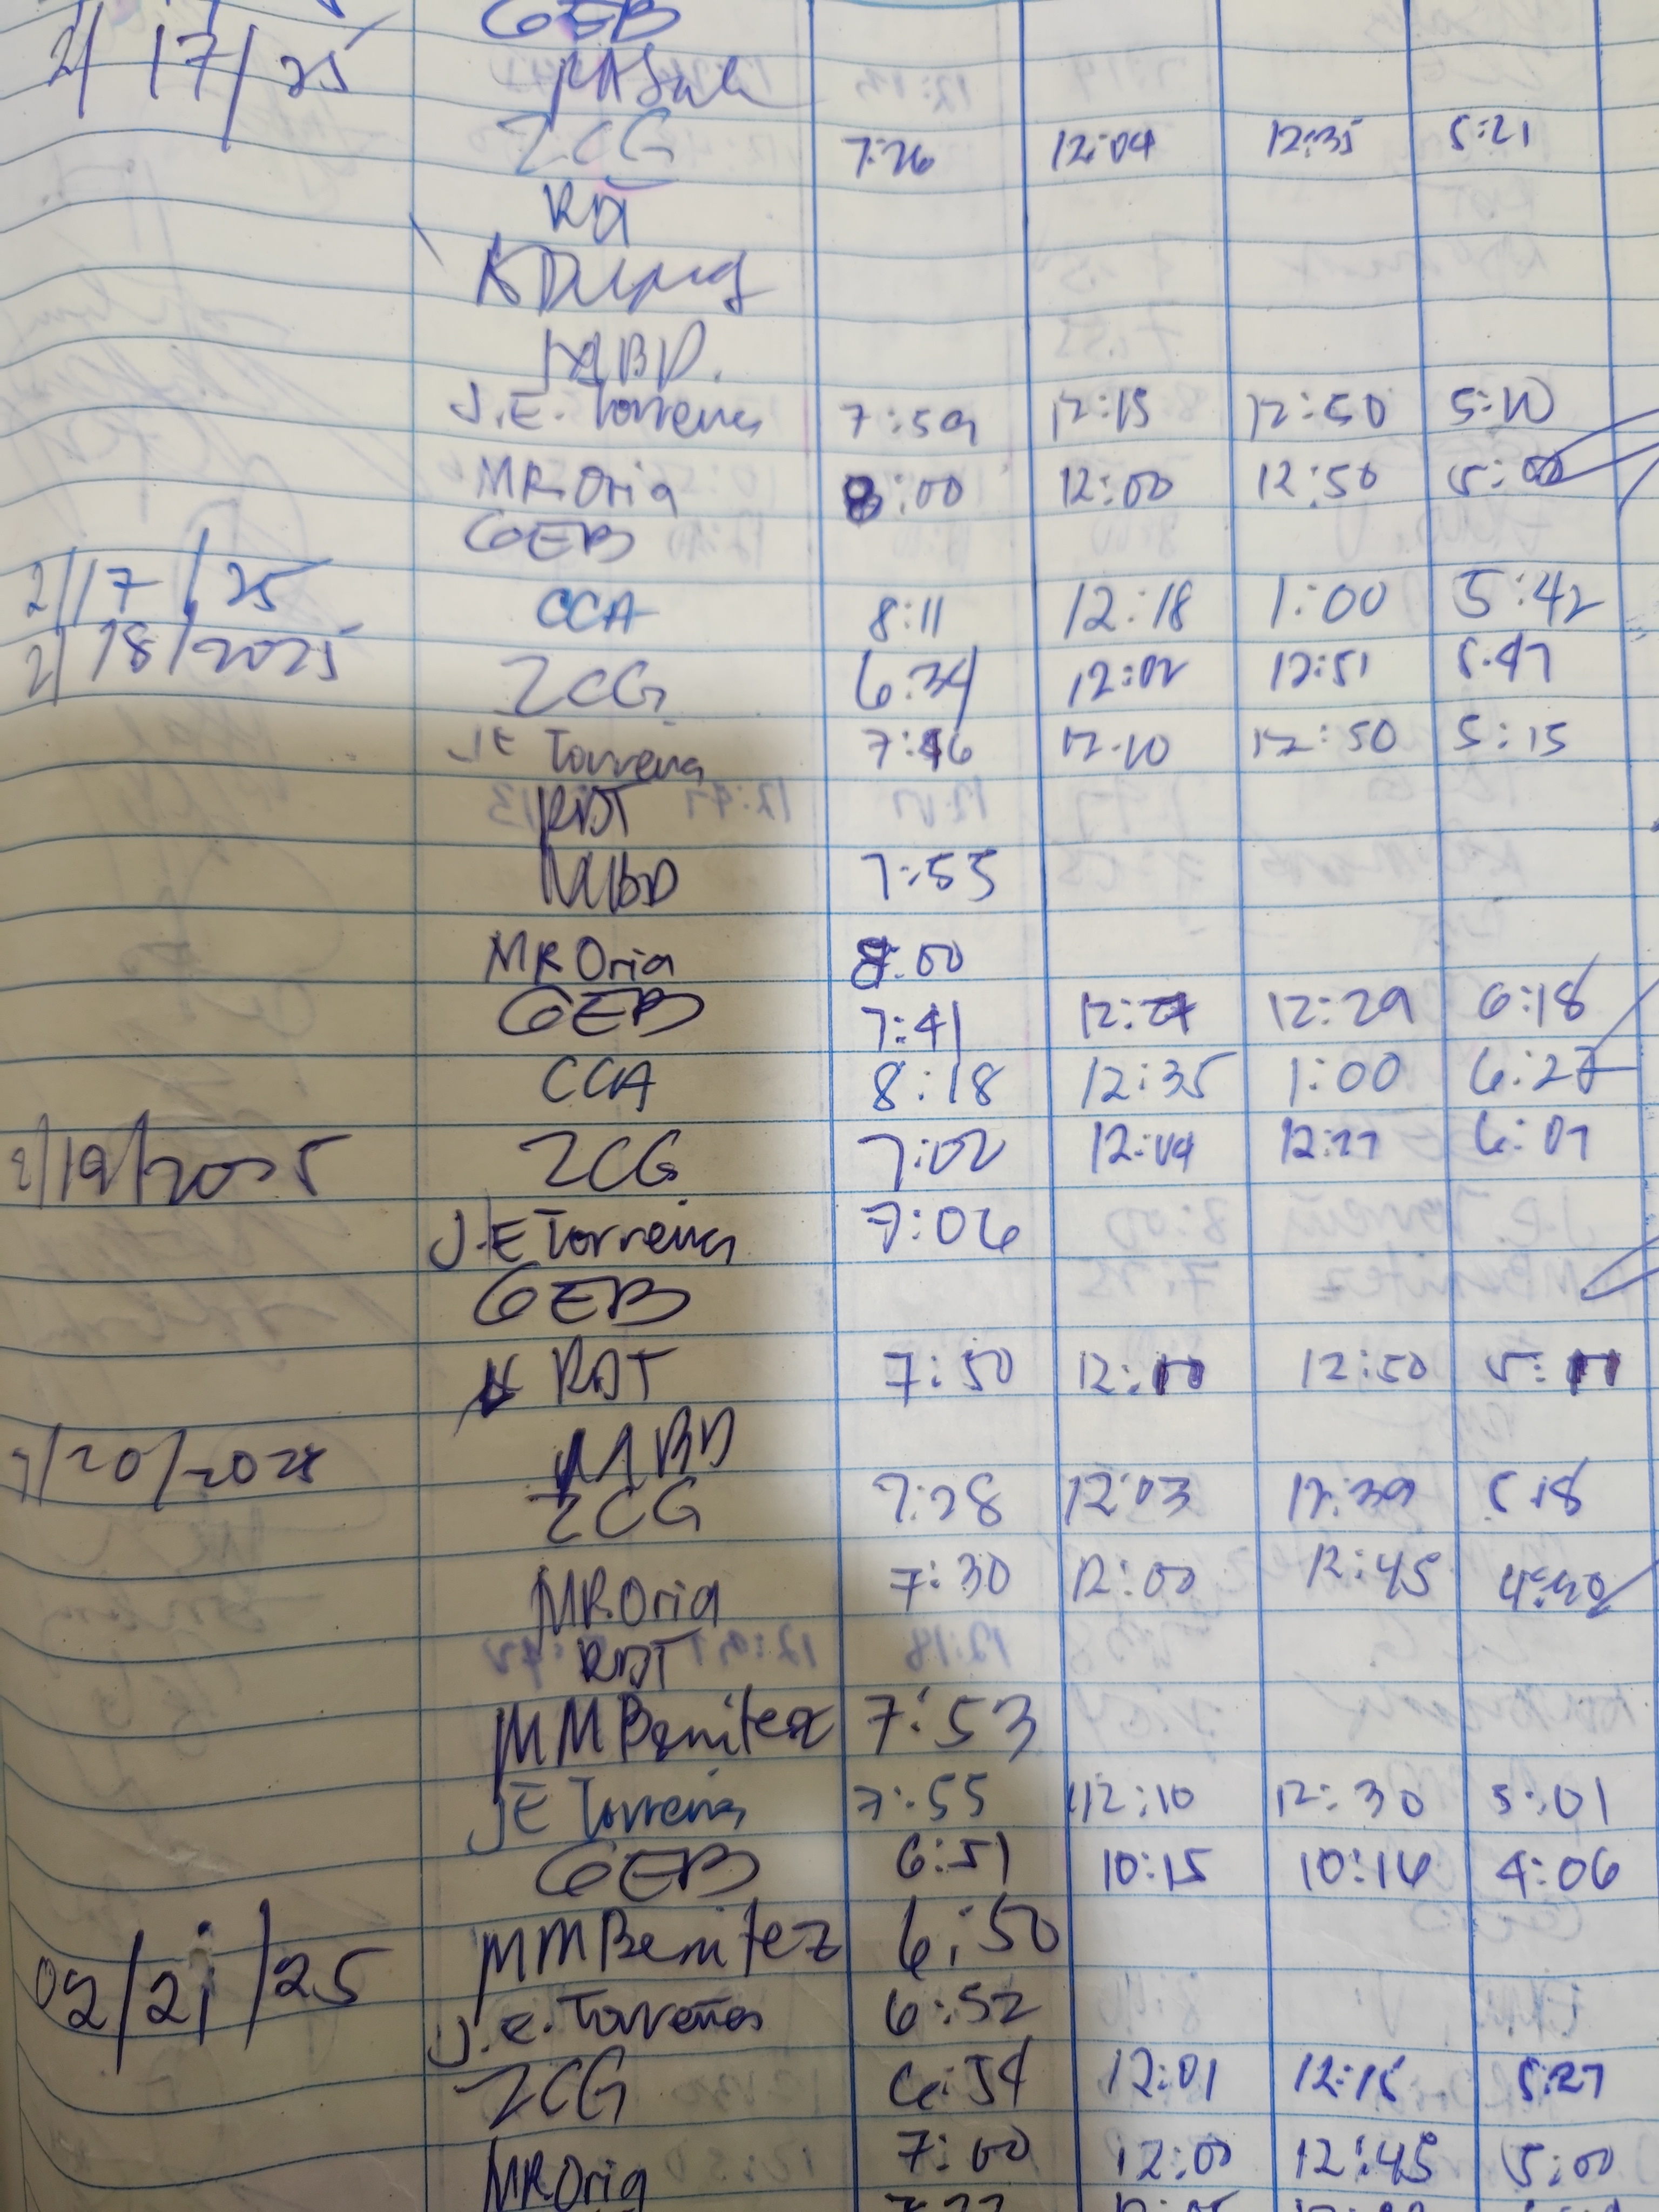 GEB
2/17/25
ZCG 7:26 12:04 12:35 5:21
J.E. Torreña 7:59 12:15 12:50 5:10
MR Oria 8:00 12:00 12:50 5:00
GEB
2/17/25 CCA 8:11 12:18 1:00 5:42
2/18/2025 ZCG 6:34 12:02 12:51 5:47
JE Torreña 7:46 12:10 12:50 5:15
RDT
MBD 7:55
MR Oria 8:00
GEB 7:41 12:27 12:29 6:18
CCA 8:18 12:35 1:00 6:27
2/19/2025 ZCG 7:02 12:04 12:27 6:07
J.E Torreña 7:06
GEB
RDT 7:50 12:10 12:50 5:11
MBD
2/20/2025 ZCG 7:28 12:03 12:39 5:18
MR Oria 7:30 12:00 12:45 4:40
RDT
MM Benitez 7:53
JE Torreña 7:55 12:10 12:30 5:01
GEB 6:51 10:15 10:16 4:06
02/21/25 MM Benitez 6:50
J.E. Torreña 6:52
ZCG 6:54 12:01 12:15 5:27
MR Oria 7:00 12:00 12:45 5:00